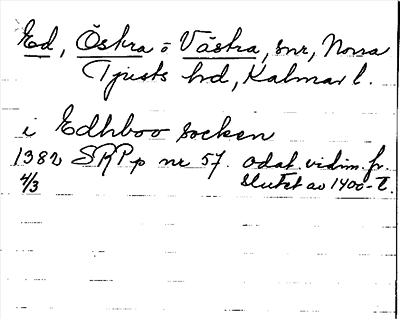 Ed, Östra o Västra, snr, Norra
Tjusts hd, Kalmar l.
i Edhboo socken
1382 SRPp nr 57. odat. vidim. fr.
4/3 slutet av 1400-t.